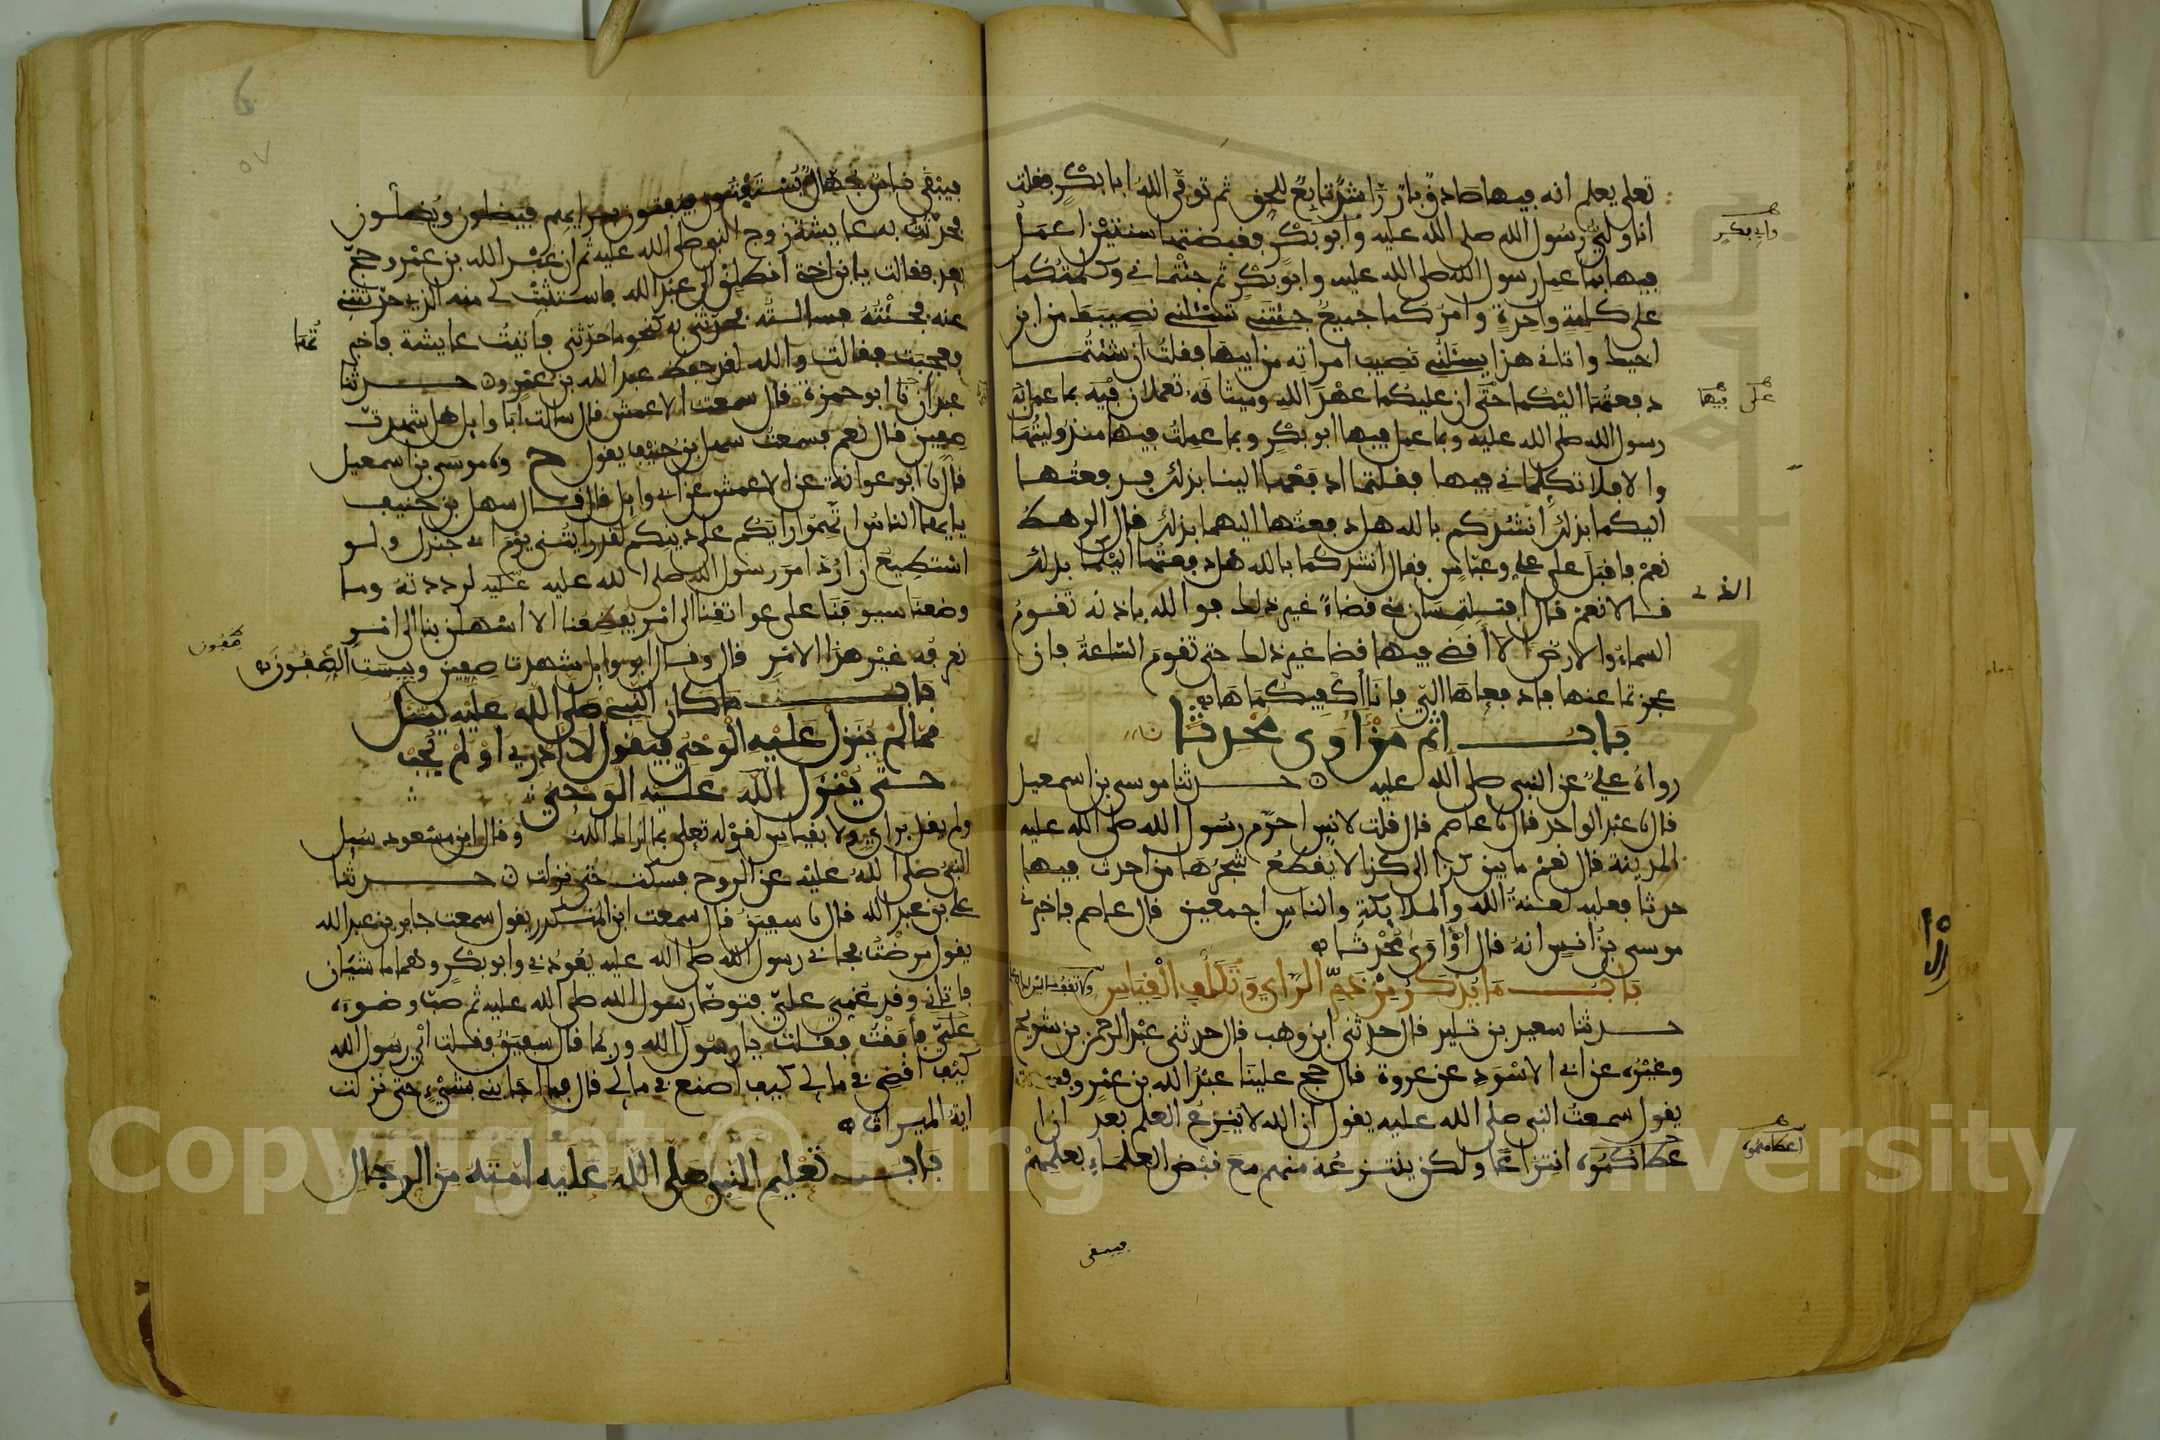 تعلى يعلم انه فيها صادق بار راشد تابع للحق ثم توفى الله ابا بكر فقلت
انا ولي رسول الله صلى الله عليه وابو بكر فقبضتها سنتين اعمل
فيها بما عمل رسول الله صلى الله عليه وابو بكر ثم جئتماني وكلمتكما
على كلمة واحدة وامركما جميع جئتني تسئلني نصيبك من ابن
اخيك واتاني هذا يسئلني نصيب امراته من ابيها فقلت ان شئتما
دفعتها اليكما حتى ان عليكما عهد الله وميثاقه تعملان فيه بما عمل به
رسول الله صلى الله عليه وبما عمل فيها ابو بكر وبما عملت فيها منذ وليتها
والا فلا تكلماني فيها فقلتما ادفعها الينا بذلك فدفعتها
اليكما بذلك انشدكم بالله هل دفعتها اليهما بذلك قال الرهط
نعم فاقبل على علي وعباس فقال انشدكما بالله هل دفعتها اليكما بذلك
قالا نعم قال افتلتمسان مني قضاء غير ذلك فوالله باذنه تقوم
السماء والارض لا اقضي فيها قضا غير ذلك حتى تقوم الساعة فان
عجزتما عنها فادفعاها الي فانا اكفيكماها
باب اثم من آوى محدثا
رواه علي عن النبي صلى الله عليه حدثنا موسى بن اسمعيل
قال نا عبد الواحد قال نا عاصم قال قلت لانس احرم رسول الله صلى الله عليه
المدينة قال نعم ما بين كذا الى كذا لا يقطع شجرها من احدث فيها
حدثا فعليه لعنة الله والملائكة والناس اجمعين قال عاصم فاخبرني
موسى بن انس انه قال او آوى محدثا
باب ما يذكر من ذم الراي وتكلف القياس
حدثنا سعيد بن تليد قال حدثني ابن وهب قال حدثني عبد الرحمن بن شريح
وغيره عن ابي الاسود عن عروة قال حج علينا عبد الله بن عمرو فسمعته
يقول سمعت النبي صلى الله عليه يقول ان الله لا ينزع العلم بعد اذ ا
عطاكموه انتزاعا ولكن ينتزعه منهم مع قبض العلماء بعلمهم
فيبقى
وابي بكر
على فيها
الذي
اعطاهموه
فيبقى ناس جهال يستفتون فيفتون برايهم فيضلون ويضلون
فحدثت به عايشة زوج النبي صلى الله عليه ثم ان عبد الله بن عمرو حج
بعد فقالت يا بن اختي انطلق الى عبد الله فاستثبت لي منه الذي حدثتني
عنه فجئته فسالته فحدثني به كنحو ما حدثني فاتيت عايشة فاخبرتها
فعجبت فقالت والله لقد حفظ عبد الله بن عمرو حدثنا
عبدان نا ابو حمزة قال سمعت الاعمش قال سالت ابا وايل هل شهدت
صفين قال نعم فسمعت سهل بن حنيف يقول ح ونا موسى بن اسمعيل
قال نا ابو عوانة عن الاعمش عن ابي وايل قال قال سهل بن حنيف
يا ايها الناس اتهموا رايكم على دينكم لقد رايتني يوم ابي جندل ولو
استطيع ان ارد امر رسول الله صلى الله عليه عليه لرددته وما
وضعنا سيوفنا على عواتقنا الى امر يفظعنا الا اسهلن بنا الى امر
نعرفه غير هذا الامر قال وقال ابو وايل شهدت صفين وبيست الصفون
باب ما كان النبي صلى الله عليه يسئل
مما لم ينزل عليه الوحي فيقول لا ادري او لم يجب
حتى ينزل الله عليه الوحي
ولم يقل براي ولا بقياس لقوله تعلى بما اراك الله وقال ابن مسعود سيل
النبي صلى الله عليه عن الروح فسكت حتى نزلت حدثنا
علي بن عبد الله قال نا سفين قال سمعت ابن المنكدر يقول سمعت جابر بن عبد الله
يقول مرضت فجاني رسول الله صلى الله عليه يعودني وابو بكر وهما ماشيان
فاتاني وقد غمي علي فتوضا رسول الله صلى الله عليه ثم صب وضوءه
علي فافقت فقلت يا رسول الله وربما قال سفين فقلت اي رسول الله
كيف اقضي في مالي كيف اصنع في مالي قال فما اجابني بشيء حتى نزلت
اية الميراث
باب تعليم النبي صلى الله عليه امته من الرجال
صفون
٥٧
Copyright © King Saud University